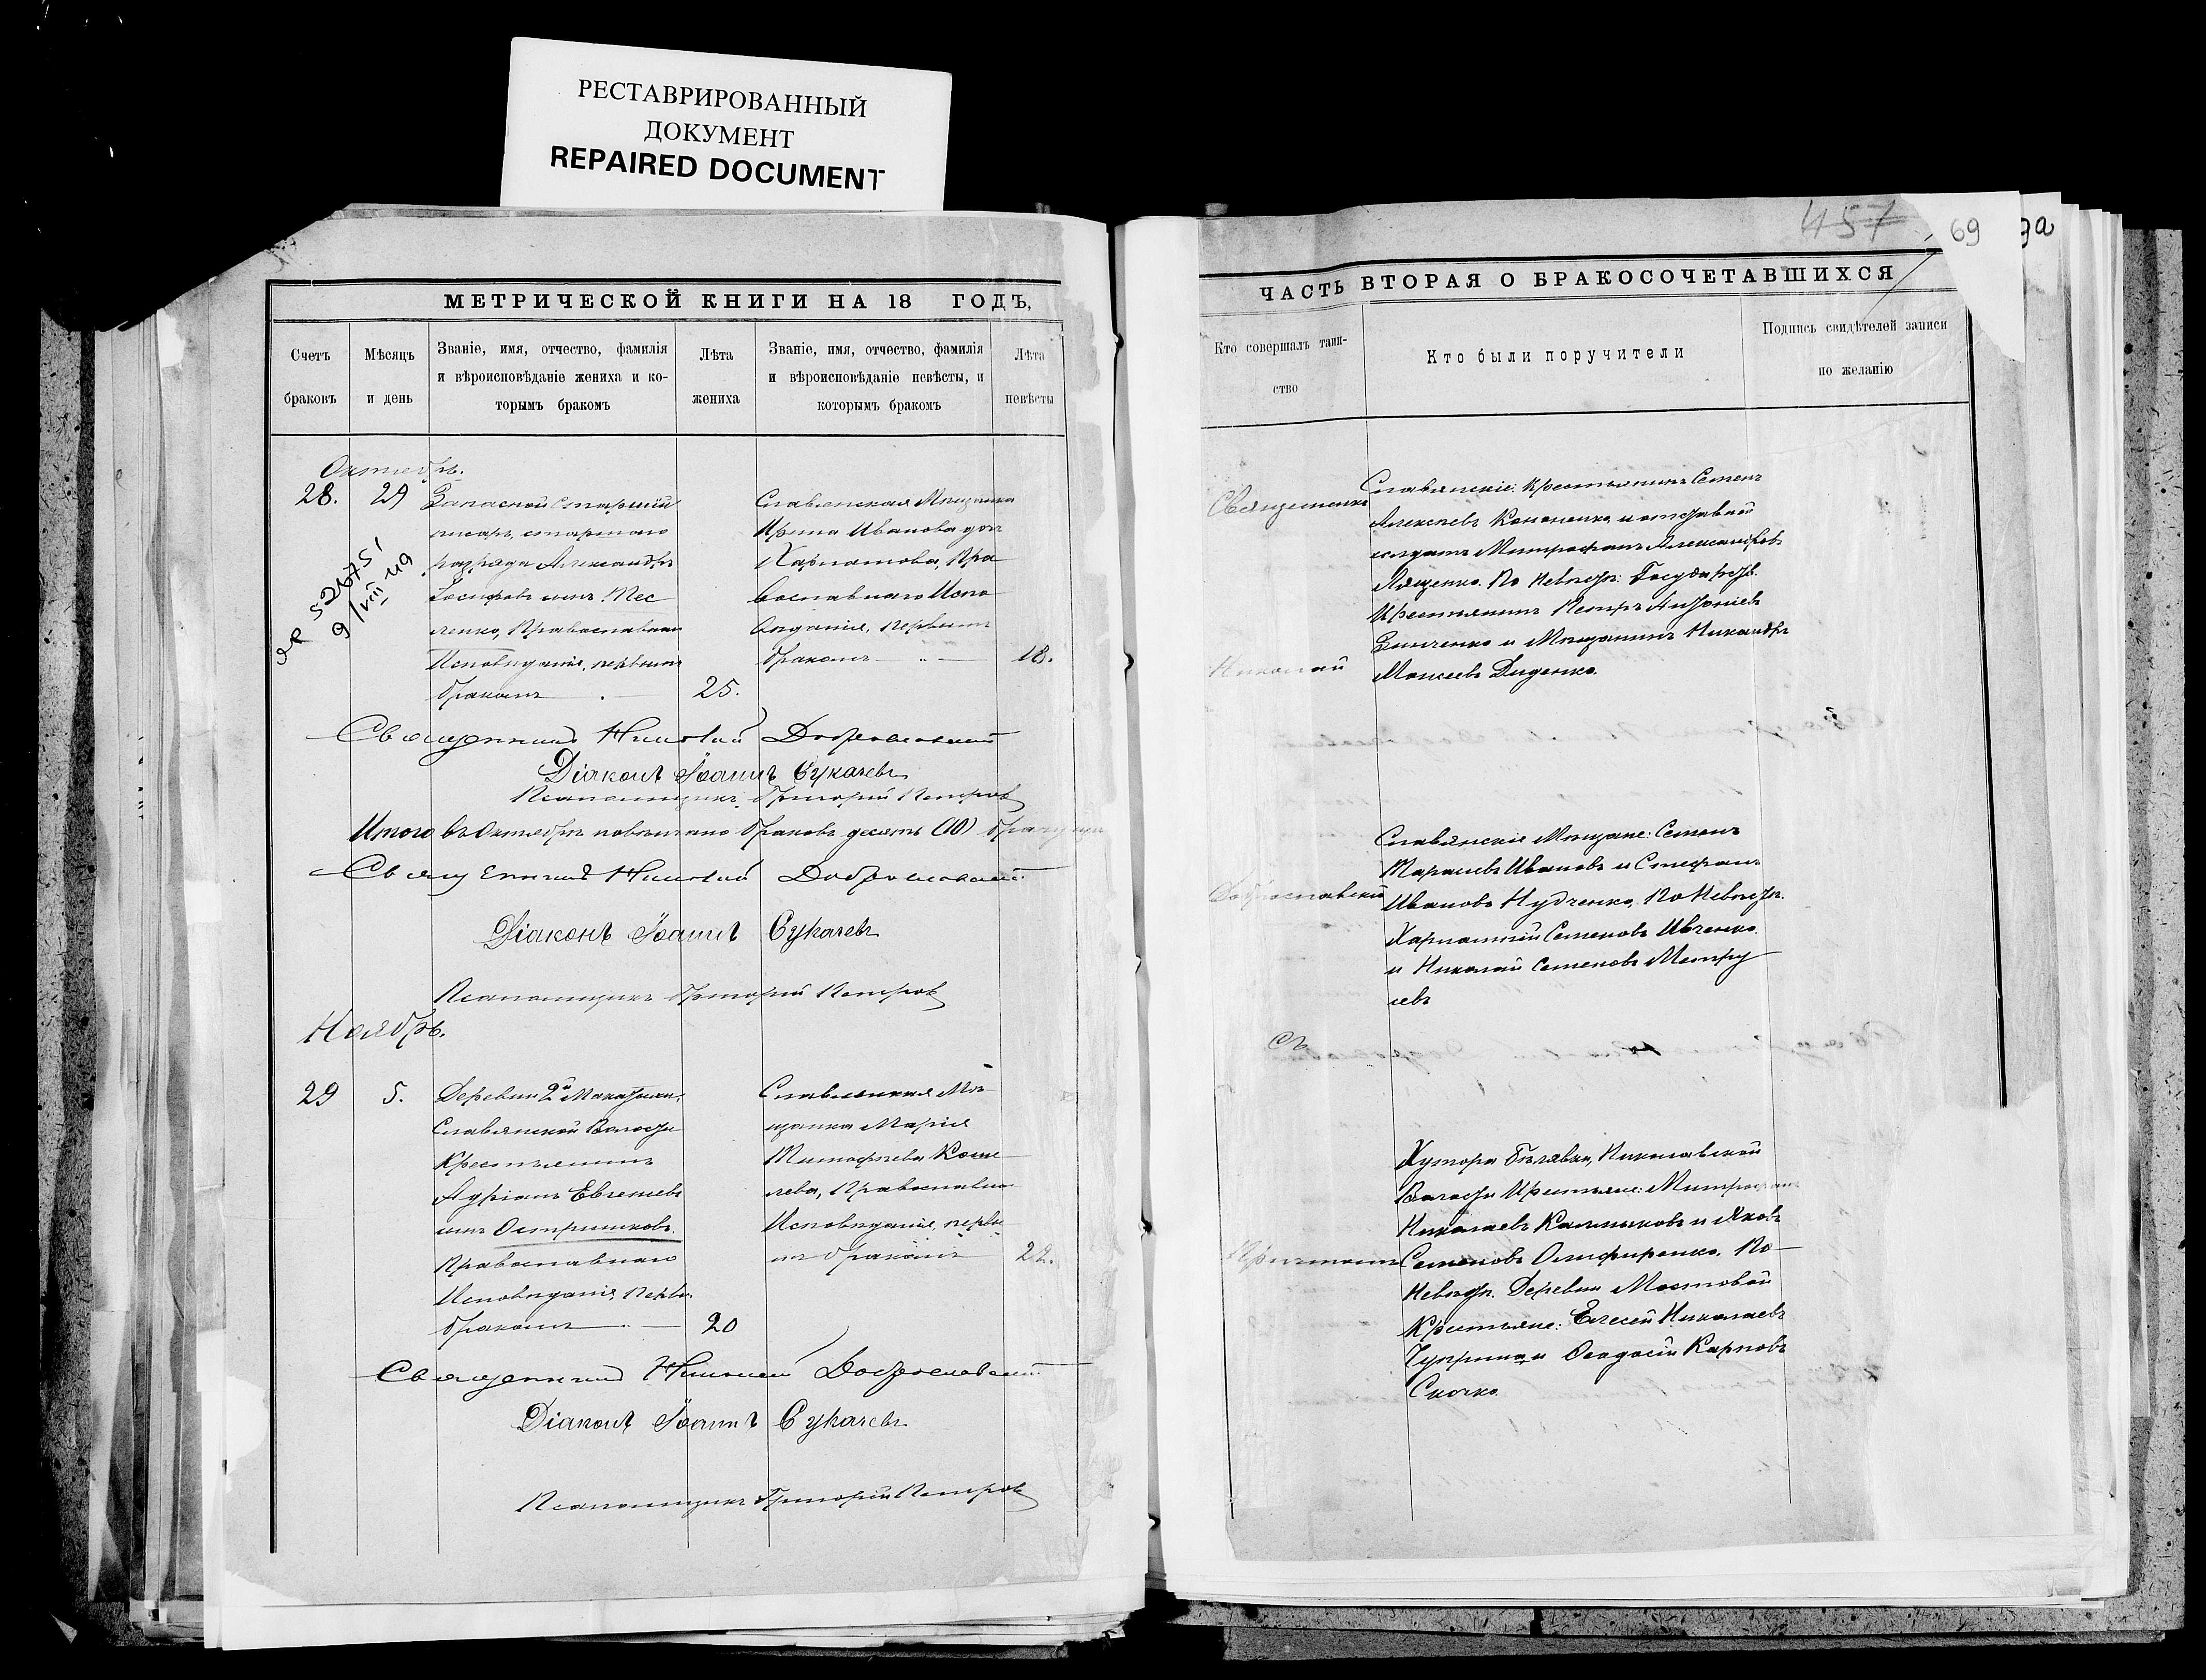 РЕСТАВРИРОВАННЫЙ
ДОКУМЕНТ
REPAIRED DOCUMENT
МЕТРИЧЕСКОЙ КНИГИ НА 18 ГОДЪ,
Счетъ
браковъ
Мѣсяцъ
и день
Званіе, имя, отчество, фамилія
и вѣроисповѣданіе жениха и ко-
торымъ бракомъ
Лѣта
жениха
Званіе, имя, отчество, фамилія
и вѣроисповѣданіе невѣсты, и
которымъ бракомъ
Лѣта
невѣсты
Октябрь.
28.
29
Запасной старшій
писарь, старшаго
разряда Александръ
Іосифовъ сынъ Тес
ленко, Православнаго
Исповѣданія, первымъ
бракомъ
25.
Славянская Мѣщанка
Ирина Иванова дочь
Харламова, Пра
вославнаго Испо
вѣданія, первымъ
бракомъ
18.
Священникъ Николай Доброславскій
Діаконъ Іоаннъ Сукачевъ
Псаломщикъ Григорій Петровъ
Итого въ Октябрѣ повѣнчано браковъ десять (10)
Священникъ Николай Доброславскій
Діаконъ Іоаннъ Сукачевъ
Псаломщикъ Григорій Петровъ
Ноябрь.
29
5.
Славянской Волости
Крестьянинъ
Адріанъ Евгеніевъ
сынъ Остриковъ.
Православнаго
Исповѣданія, Первы.
бракомъ
20
Славянская Мѣ
щанка Марія
Тимофѣева Коше
лева, Православна
Исповѣданія, первы
мъ бракомъ
22.
Священникъ Николай Доброславскій
Діаконъ Іоаннъ Сукачевъ
Псаломщикъ Григорій Петровъ
457
69
9а
ЧАСТЬ ВТОРАЯ О БРАКОСОЧЕТАВШИХСЯ
Кто совершалъ таин-
ство
Кто были поручители
Подпись свидѣтелей записи
по желанію
Священникъ
Николай
Доброславскій
съ
Причтомъ
Славянскіе: Крестьянинъ Семенъ
Алексѣевъ Кононенко и отставной
солдатъ Митрофанъ Александровъ
Лященко. По Невѣстѣ: Государств.
Крестьянинъ Петръ Антоніевъ
Зинченко и Мѣщанинъ Никандръ
Моисеевъ Диденко.
Славянскіе Мѣщане: Семенъ
Тарасіевъ Ивановъ и Стефанъ
Ивановъ Нудченко, По Невѣстѣ.
Харлампій Семеновъ Ивченко
и Николай Семеновъ
Хутора Бѣлявки, Николаевской
Волости Крестьяне: Митрофанъ
Николаевъ Калмыковъ и Яковъ
Семеновъ Олифиренко. По
Невѣстѣ. Деревни Мостовой
Крестьяне: Елисей Николаевъ
Чуприна и Ѳеодосій Карповъ
Скочко.